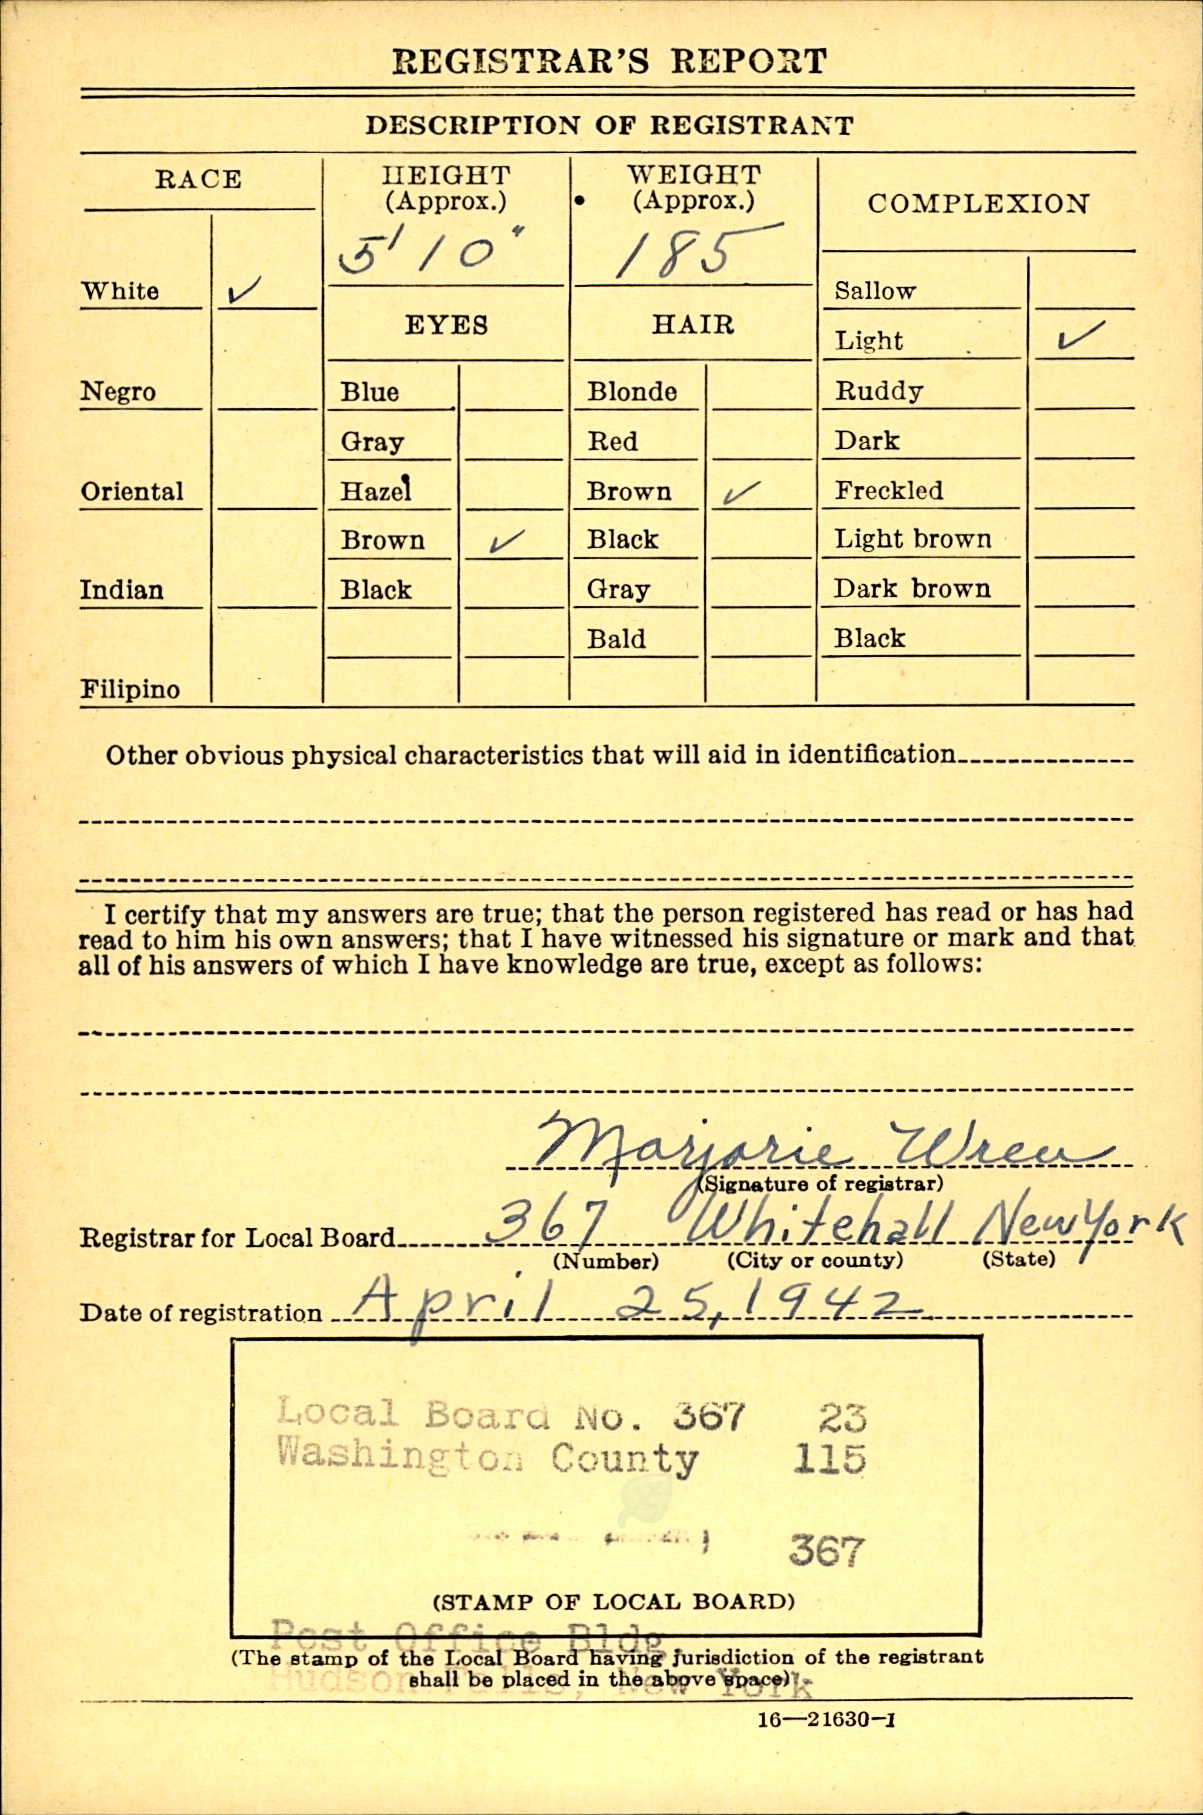 REGISTRAR'S REPORT
DESCRIPTION OF REGISTRANT
RACE
HEIGHT
(Approx.)
WEIGHT
(Approx.)
COMPLEXION
5' 10"
185
White ✓
Sallow
EYES
HAIR
Light ✓
Negro
Blue
Blonde
Ruddy
Gray
Red
Dark
Oriental
Hazel
Brown ✓
Freckled
Brown ✓
Black
Light brown
Indian
Black
Gray
Dark brown
Bald
Black
Filipino
Other obvious physical characteristics that will aid in identification
I certify that my answers are true; that the person registered has read or has had
read to him his own answers; that I have witnessed his signature or mark and that
all of his answers of which I have knowledge are true, except as follows:
Marjorie Wren
(Signature of registrar)
Registrar for Local Board 367 Whitehall New York
(Number) (City or county) (State)
Date of registration April 25, 1942
Local Board No. 367 23
Washington County 115
367
(STAMP OF LOCAL BOARD)
Post Office Bldg.
(The stamp of the Local Board having jurisdiction of the registrant
shall be placed in the above space)
Hudson Falls, New York
16—21630-1